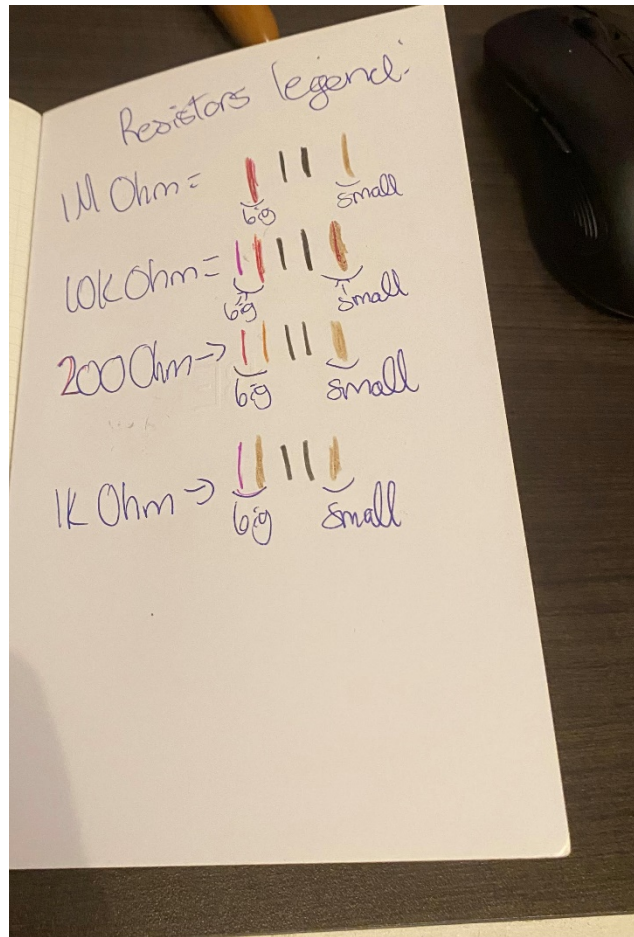 Resistors legend:
1M Ohm =
big small
10K Ohm =
big small
200 Ohm →
big small
1K Ohm →
big small